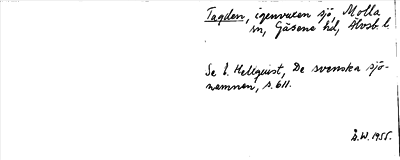 Tagden, igenvuxen sjö, Molla
sn, Gäsene hd, Älvsb. l.
Se E. Hellquist, De svenska sjö-
namnen, s. 611.
Å.W. 1955.